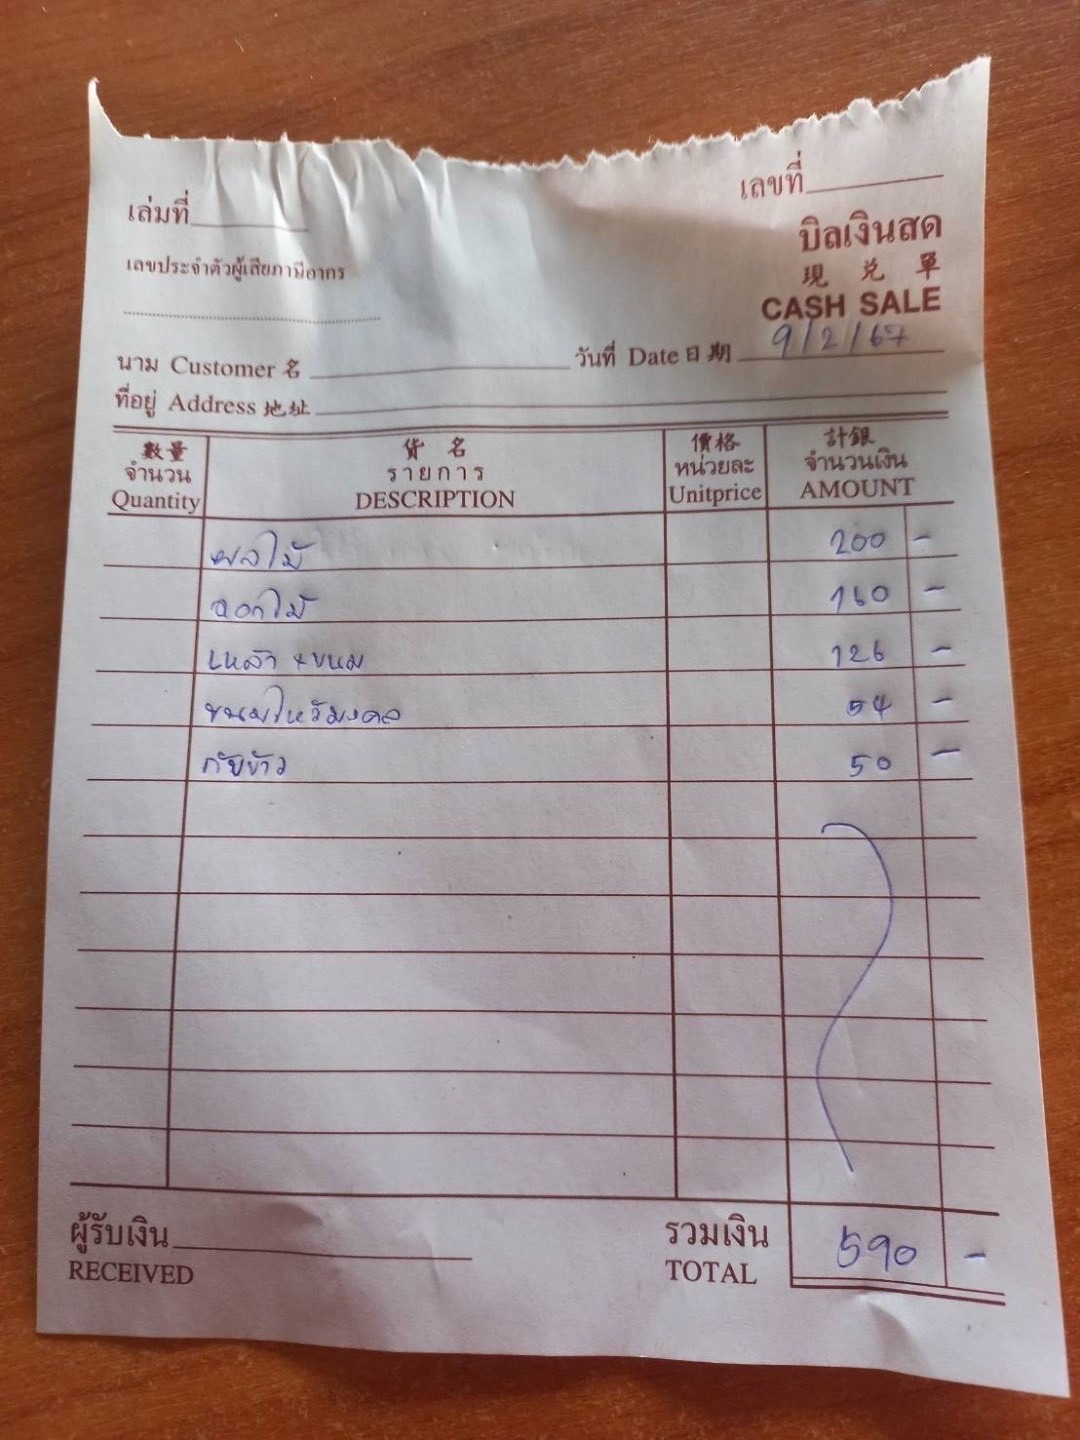 เล่มที่
เลขที่
บิลเงินสด
現兑單
CASH SALE
เลขประจำตัวผู้เสียภาษีอากร
นาม Customer 名
วันที่ Date 日期 9/2/67
ที่อยู่ Address 地址
數量 貨名 價格 計銀
จำนวน รายการ หน่วยละ จำนวนเงิน
Quantity DESCRIPTION Unitprice AMOUNT
ผลไม้ 200 -
ดอกไม้ 160 -
เหล้า + ขนม 126 -
ขนมไหว้มงคล 54 -
กับข้าว 50 -
ผู้รับเงิน รวมเงิน 590 -
RECEIVED TOTAL